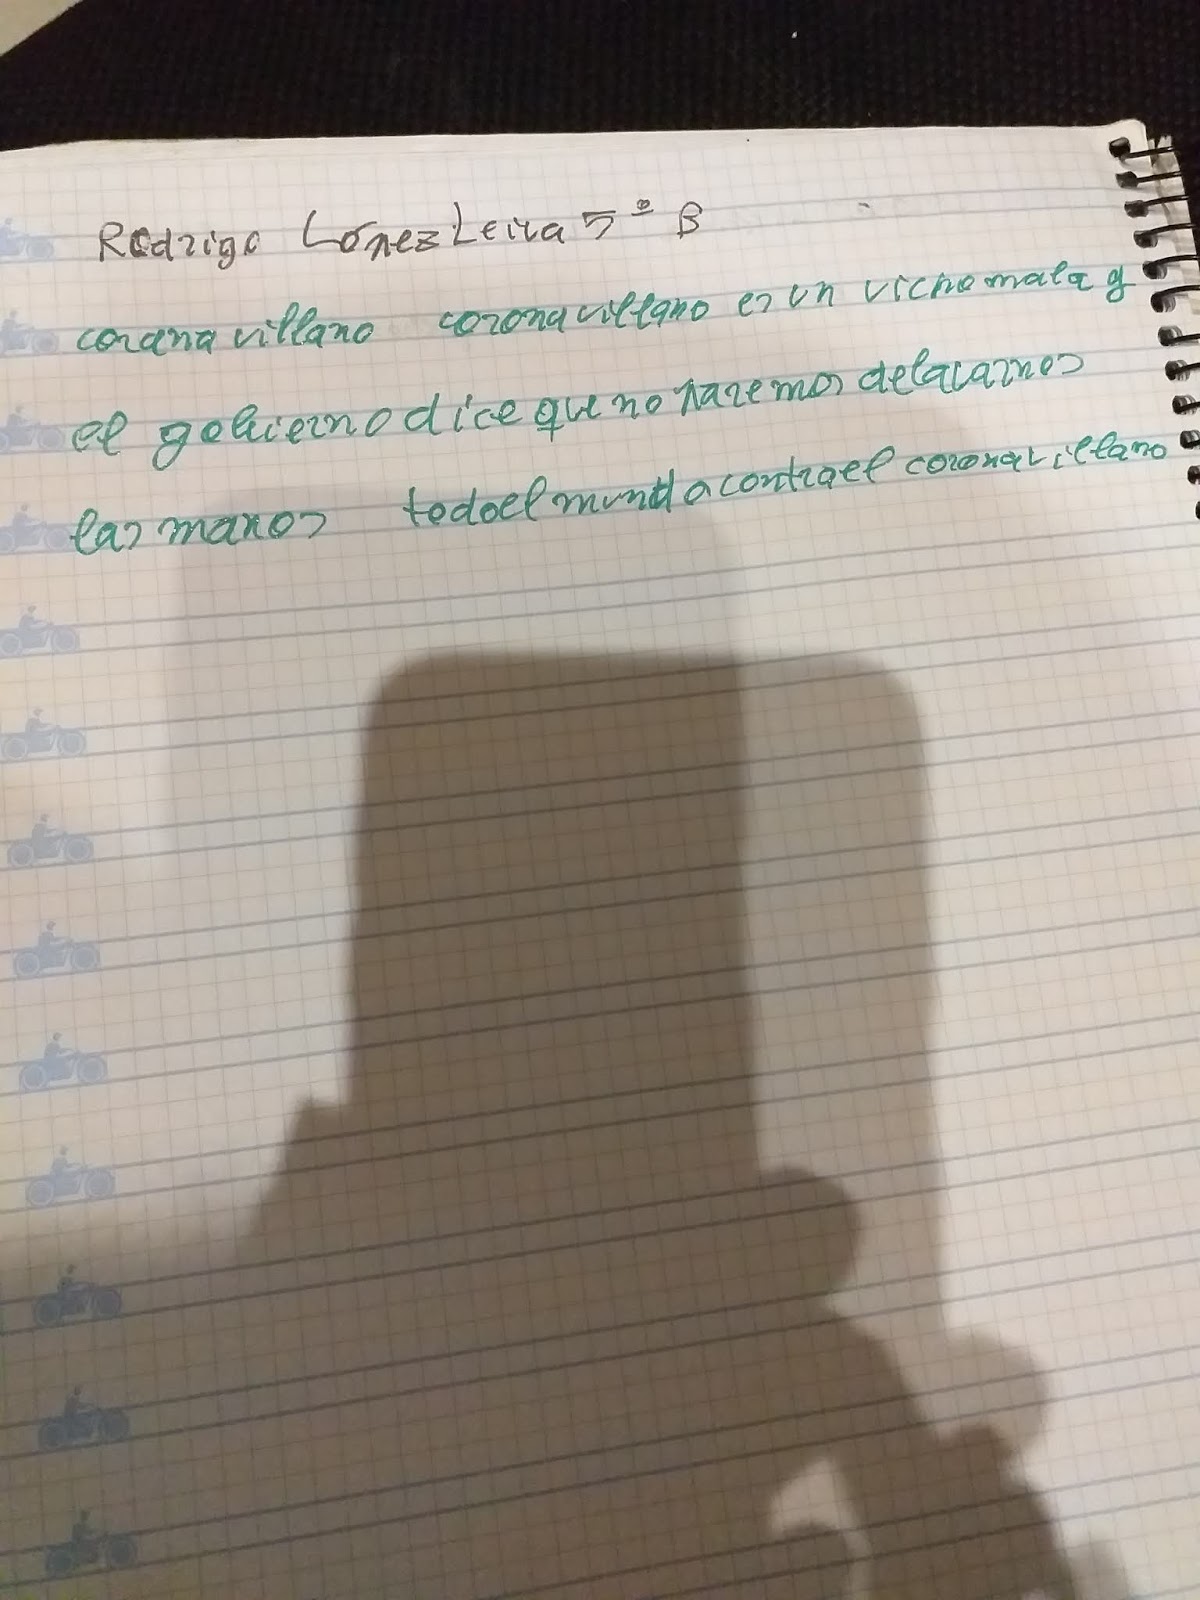 Rodrigo López Leira 5º B
corona villano coronavillano es un vicho malo y
el gobierno dice que no paremos delabarnos
las manos todoel mundo contrael coronavillano